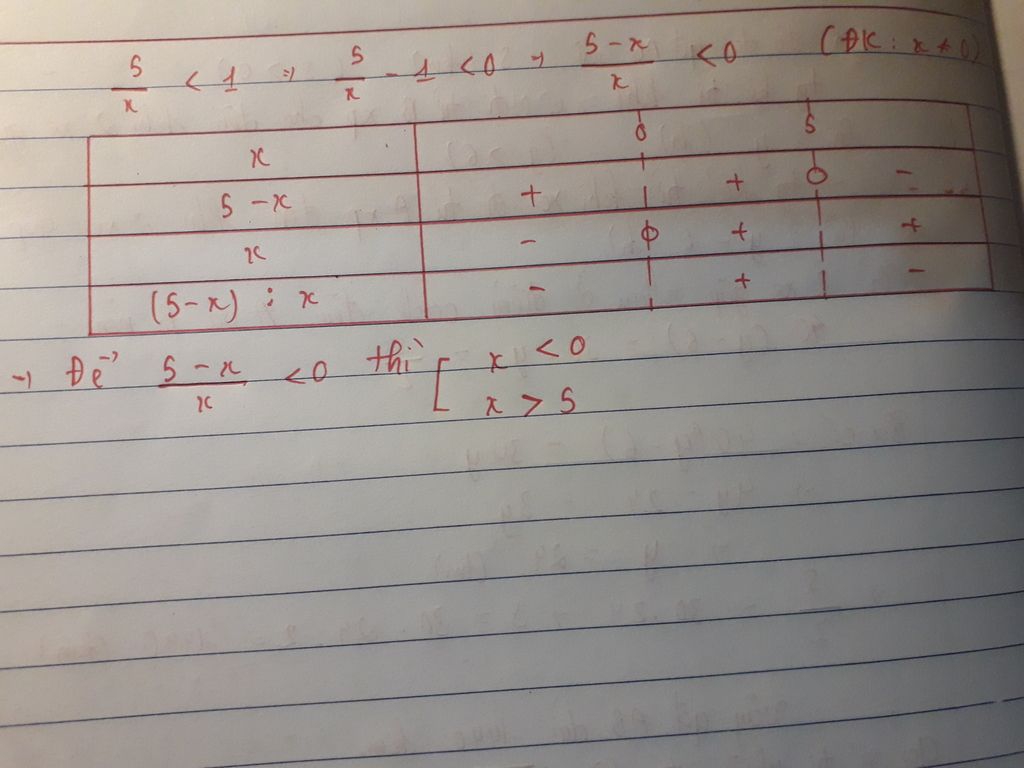 5/x < 1 => 5/x - 1 < 0 → (5-x)/x < 0 (ĐK: x ≠ 0)
x 0 5
5 - x + | + 0 -
x - 0 + | +
(5-x) : x - | + | -
→ Để (5-x)/x < 0 thì [ x < 0
x > 5